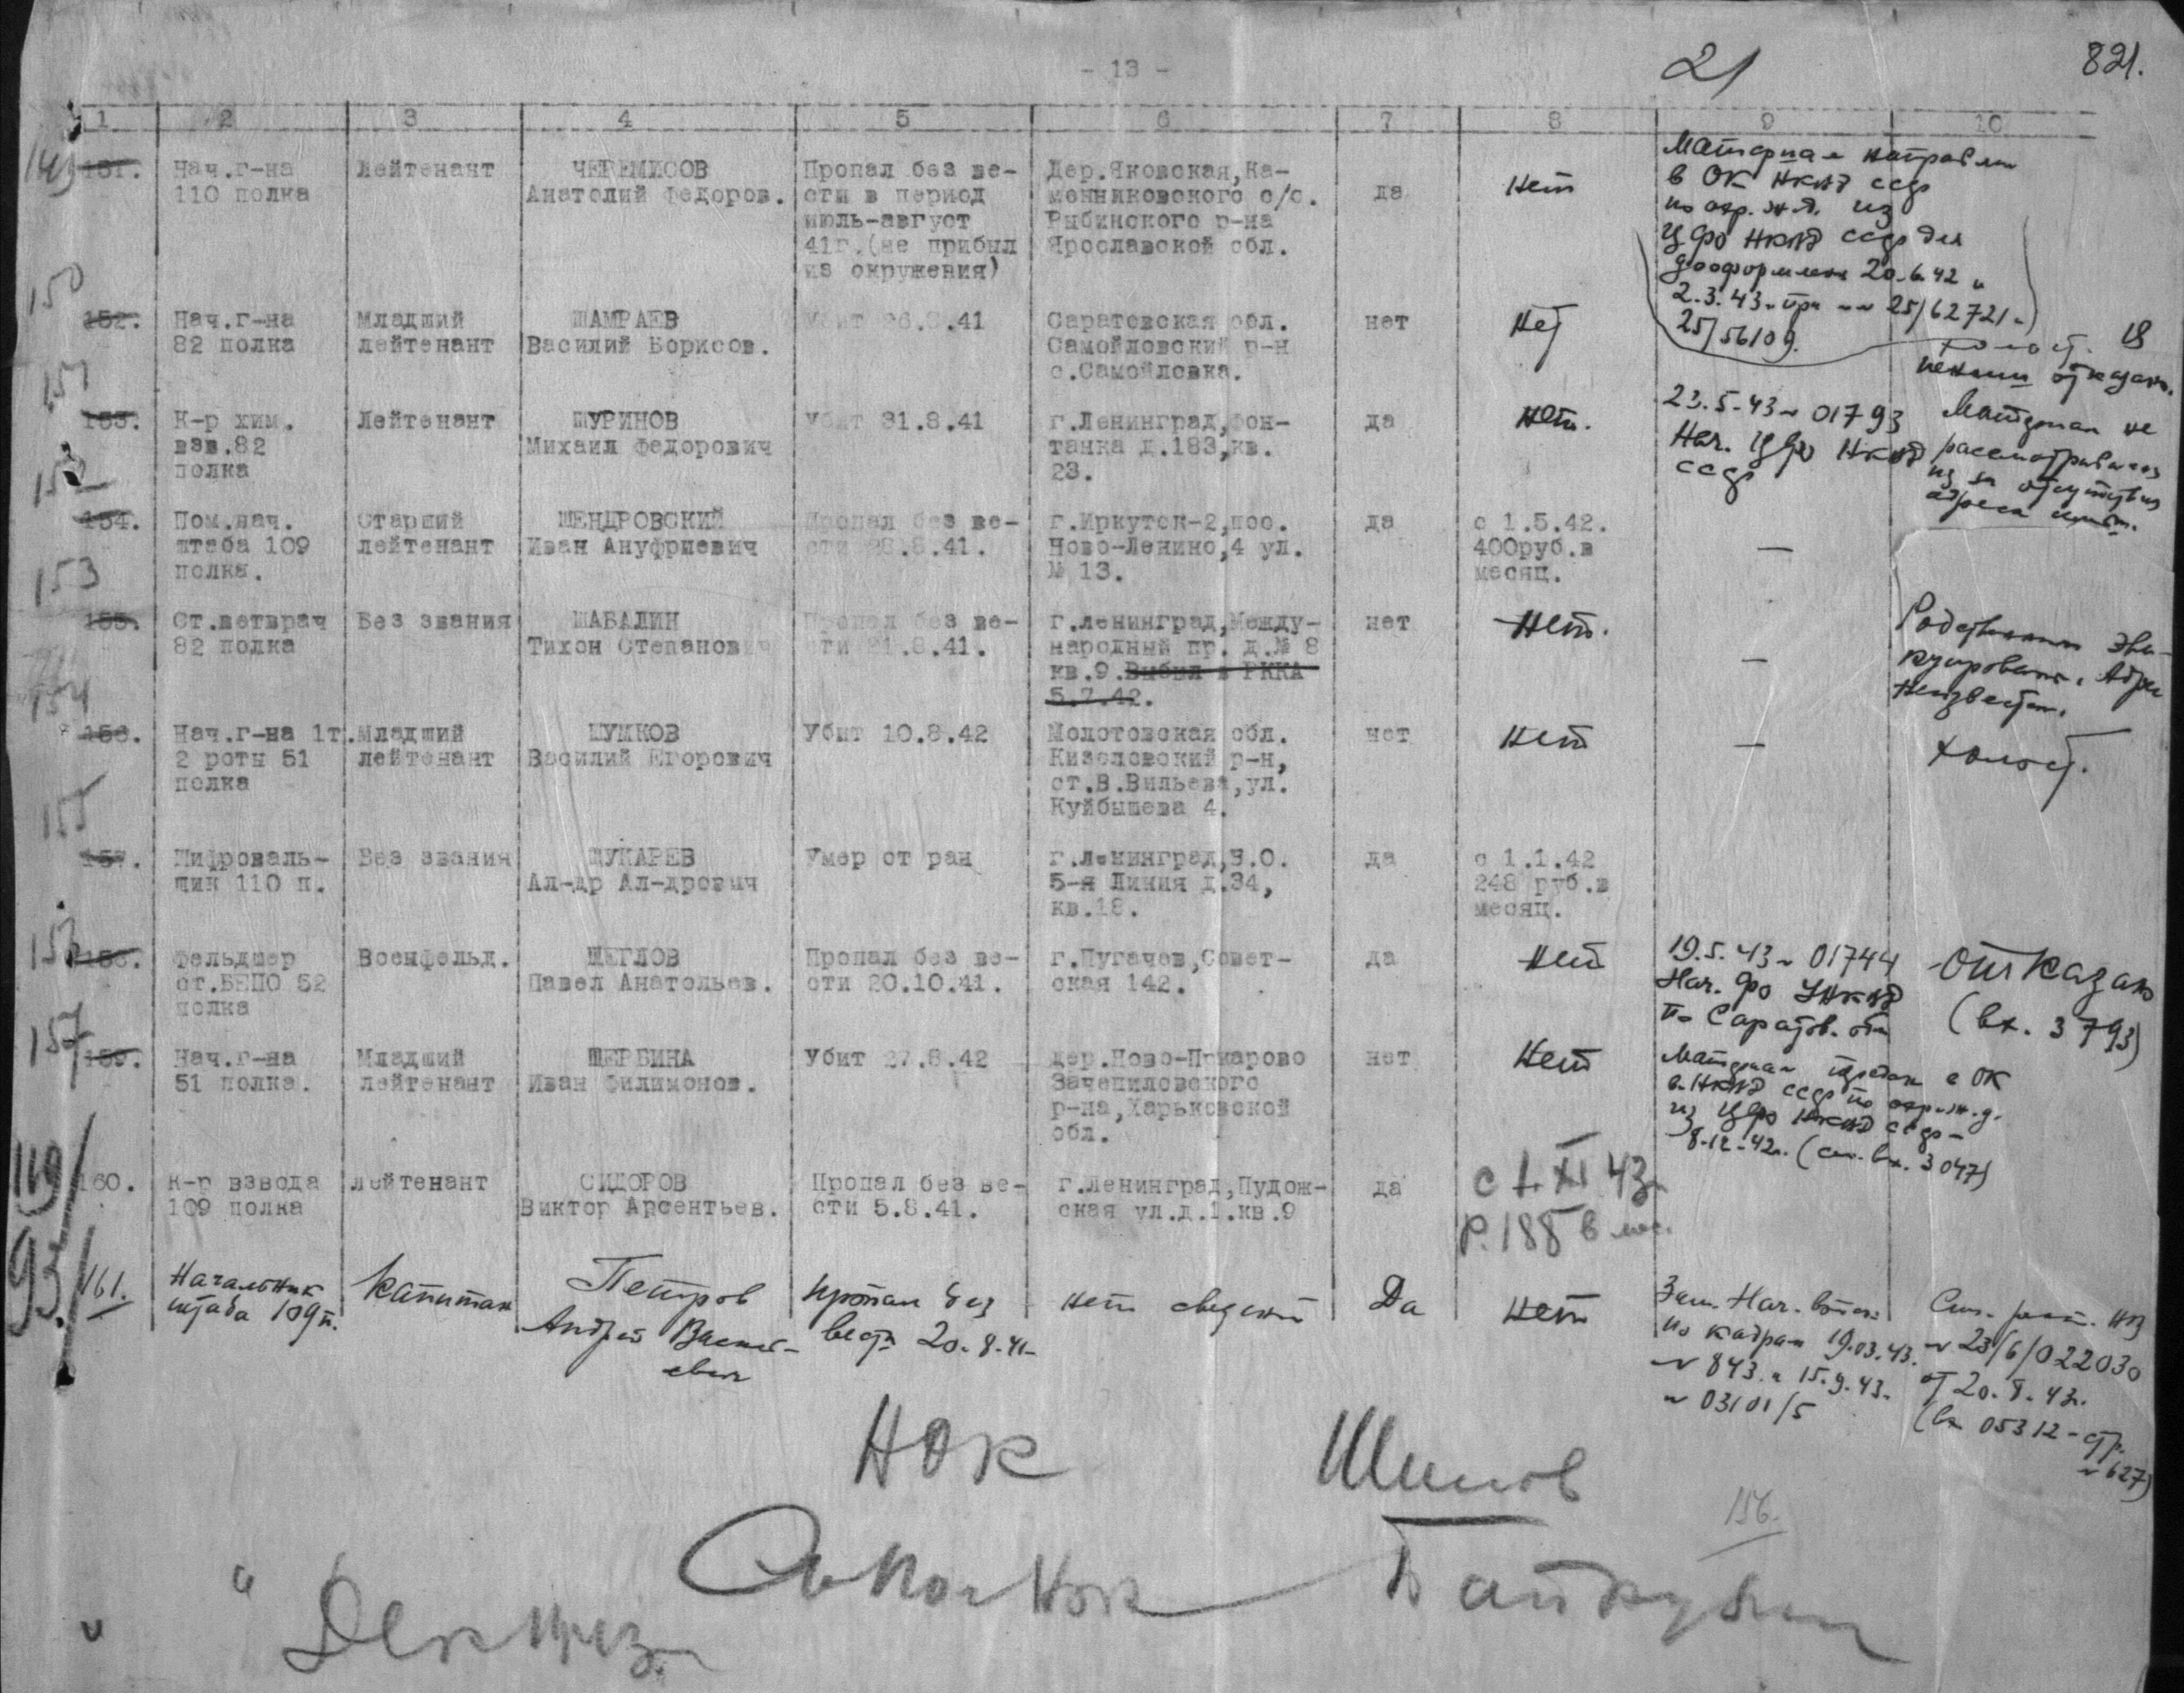 - 13 -
21
821.
1 2 3 4 5 6 7 8 9 10
149
151. Нач.г-на Лейтенант ЧЕРЕМИСОВ Пропал без ве- Дер.Яковская,Ка- да нет
110 полка Анатолий Федоров. сти в период менниковского с/с.
июль-август Рыбинского р-на
41г.(не прибыл Ярославской обл.
из окружения)
Материал направлен
в ОК НКВД ссср
по охр. ж.д. из
ЦФО НКВД ссср для
дооформлен 20.6.42 и
2.3.43 25/62721
25/56109.
150
152. Нач.г-на Младший ШАМРАЕВ Убит 26.8.41 Саратовская обл. нет Нет
82 полка лейтенант Василий Борисов. Самойловский р-н
с.Самойловка.
холост. В
пенсии отказано.
151
153. К-р хим. Лейтенант ШУРИНОВ Убит 31.8.41 г.Ленинград,Фон- да нет.
взв.82 Михаил Федорович танка д.183,кв.
полка 23.
23.5.43 01793
Нач. ЦФО НКВД
ссср
Материал не
рассматривался
из за отсутствия
адреса
152
154. Пом.нач. Старший ШЕНДРОВСКИЙ Пропал без ве- г.Иркутск-2,пос. да с 1.5.42. —
штаба 109 лейтенант Иван Ануфриевич сти 28.8.41. Ново-Ленино,4 ул. 400руб.в
полка. № 13. месяц.
153
155. Ст.ветврач Без звания ШАБАЛИН Пропал без ве- г.Ленинград,Между- нет Нет. —
82 полка Тихон Степанович сти 21.8.41. народный пр. д.№ 8
кв.9.Выбыл в РККА
5.7.42.
Родственники эва-
куированы. Адрес
неизвестен.
154
156. Нач.г-на 1т. Младший ШУМКОВ Убит 10.8.42 Молотовская обл. нет нет — холост.
2 роты 51 лейтенант Василий Егорович Кизеловский р-н,
полка ст.В.Вильева,ул.
Куйбышева 4.
155
157. Шифроваль- Без звания ЩУКАРЕВ Умер от ран г.Ленинград,В.О. да с 1.1.42
щик 110 п. Ал-др Ал-дрович 5-я Линия д.34, 248 руб.в
кв.18. месяц.
156
158. Фельдшер Военфельд. ЩЕГЛОВ Пропал без ве- г.Пугачев,Совет- да нет
ст.БЕПО 52 Павел Анатольев. сти 20.10.41. ская 142.
полка
19.5.43 01744
Нач. ФО УНКВД
по Саратов. обл
отказано
(вх. 3793)
157
159. Нач.г-на Младший ЩЕРБИНА Убит 27.8.42 дер.Ново-Пикарово нет Нет
51 полка. лейтенант Иван Филимонов. Зачепиловского
р-на,Харьковской
обл.
Материал передан в ОК
НКВД ссср по охр.ж.д.
из ЦФО НКВД ссср
8-12-42г. (см. вх. 3047)
160. К-р взвода лейтенант СИДОРОВ Пропал без ве- г.Ленинград,Пудож- да с 1.XI 43г
109 полка Виктор Арсентьев. сти 5.8.41. ская ул.д.1.кв.9 Р.188 в мес.
93
161. Начальник капитан Петров пропал без нет сведений Да нет
штаба 109п. Андрей Василь- вести 20.8.41
евич
Зам. Нач.
по кадрам 19.03.43.
843 и 15.9.43.
03101/5
23/6/022030
от 20.8.43г.
(вх 05312 - стр.
627)
НОК Шилов
156.